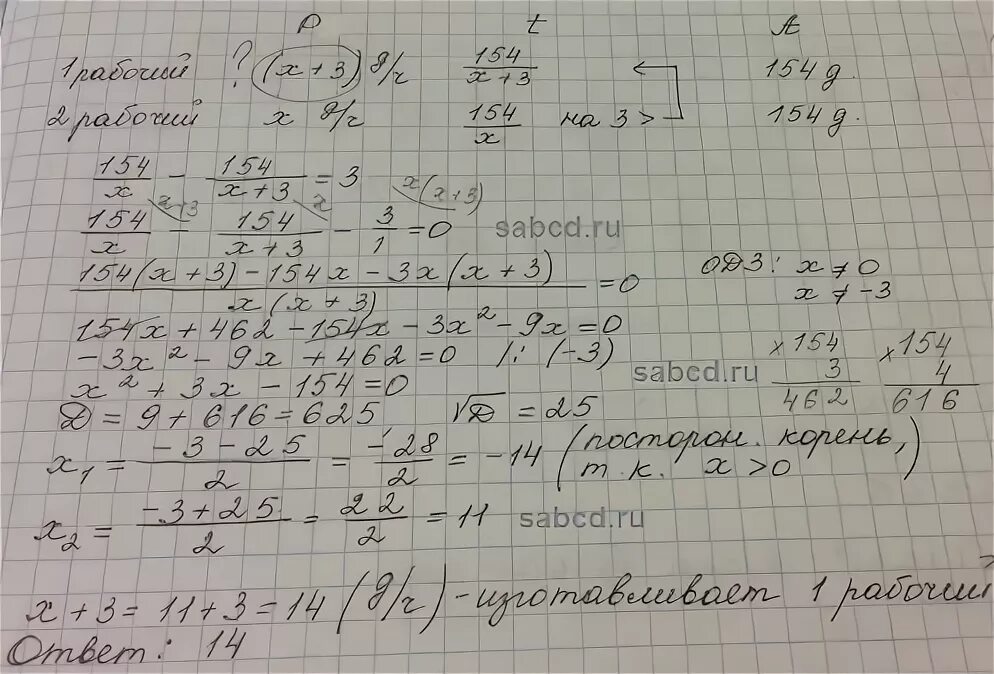 P t A
1 рабочий ? (x + 3) д/ч 154/(x + 3) 154 д.
2 рабочий x д/ч 154/x на 3 > 154 д.
154/x - 154/(x + 3) = 3
x+3 x x(x+3)
154/x - 154/(x + 3) - 3/1 = 0 sabcd.ru
(154(x + 3) - 154x - 3x(x + 3))/(x(x + 3)) = 0 ОДЗ: x ≠ 0
x ≠ -3
154x + 462 - 154x - 3x² - 9x = 0
-3x² - 9x + 462 = 0 |: (-3) ×154 ×154
x² + 3x - 154 = 0 sabcd.ru 3 4
Д = 9 + 616 = 625 √Д = 25 462 616
x₁ = (-3 - 25)/2 = -28/2 = -14 (посторон. корень,
т.к. x > 0)
x₂ = (-3 + 25)/2 = 22/2 = 11 sabcd.ru
x + 3 = 11 + 3 = 14 (д/ч) - изготавливает 1 рабочий
Ответ: 14